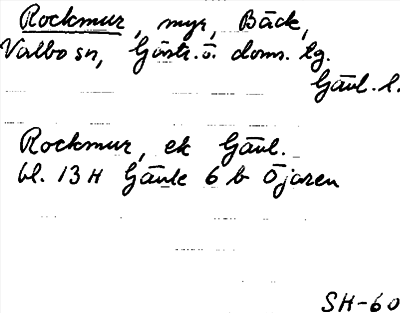 Rockmur, myr, Bäck,
Valbo sn, Gästr. ö. doms. lg.
Gävl. l.
Rockmur, ek Gävl.
bl. 13 H Gävle 6 b Öjaren
SH-60